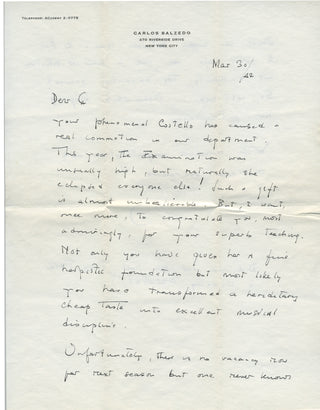 TELEPHONE: ACADEMY 2-0779
CARLOS SALZEDO
270 RIVERSIDE DRIVE
NEW YORK CITY
Mar 30/
42
Dear
your phenomenal Costello has caused a
real commotion in our department.
This year, the Examination was
unusually high, but naturally she
eclipsed everyone else! Such a gift
is almost unbelievable. But, I want,
once more, to congratulate you, most
admiringly, for your superb teaching.
Not only you have given her a fine
harpistic foundation but most likely
you have transformed a hereditary
cheap taste into excellent musical
discipline.
Unfortunately, there is no vacancy now
for next season but one never knows